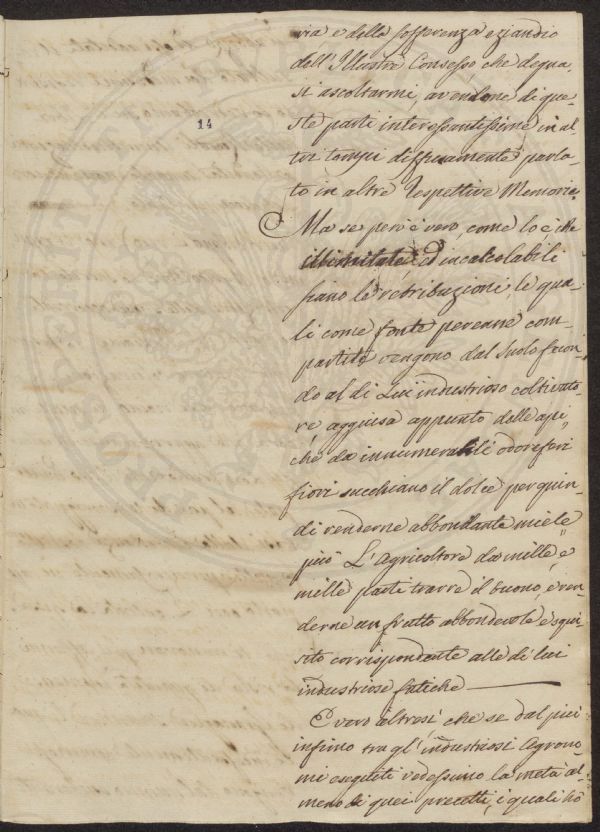 via e della sofferenza eziandio
dell'Illustre Consesso che degna,
si ascoltarmi, avendone di que-
ste parti interessantissime in al-
tri tempi diffusamente parla-
to in altre respettive Memorie.
14
Ma se però è vero, come lo è che
illimitate, ed incalcolabili
siano le retribuzioni, le qua-
li come fonte perenne com-
partite vengono dal Suolo fecon-
do al di Lui industrioso coltivato-
re agguisa appunto delle api
che da innumerabili odoriferi
fiori succhiano il dolce per quin-
di renderne abbondante miele
può L'Agricoltore da mille, e
mille parti trarre il buono, e ren-
derne un frutto abbondevole e squi-
sito corrispondente alle di lui
industriose fatiche
E vero altresì, che se dal più
infimo tra gl'industriosi Agrono-
mi eseguiti vedessimo la metà al-
meno di quei precetti, i quali hò